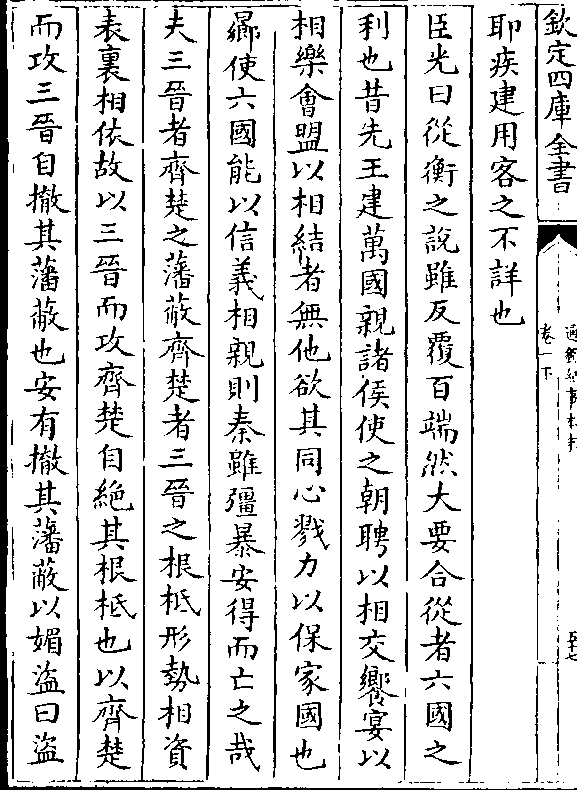 欽定四庫全書
卷一下
耶疾建用客之不詳也
臣光曰從衡之說雖反覆百端然大要合從者六國之
利也昔先王建萬國親諸侯使之朝聘以相交饗宴以
相樂會盟以相結者無他欲其同心戮力以保家國也
曏使六國能以信義相親則秦雖彊暴安得而亡之哉
夫三晉者齊楚之藩蔽齊楚者三晉之根柢形勢相資
表裏相依故以三晉而攻齊楚自絶其根柢也以齊楚
而攻三晉自撤其藩蔽也安有撤其藩蔽以媚盜曰盜